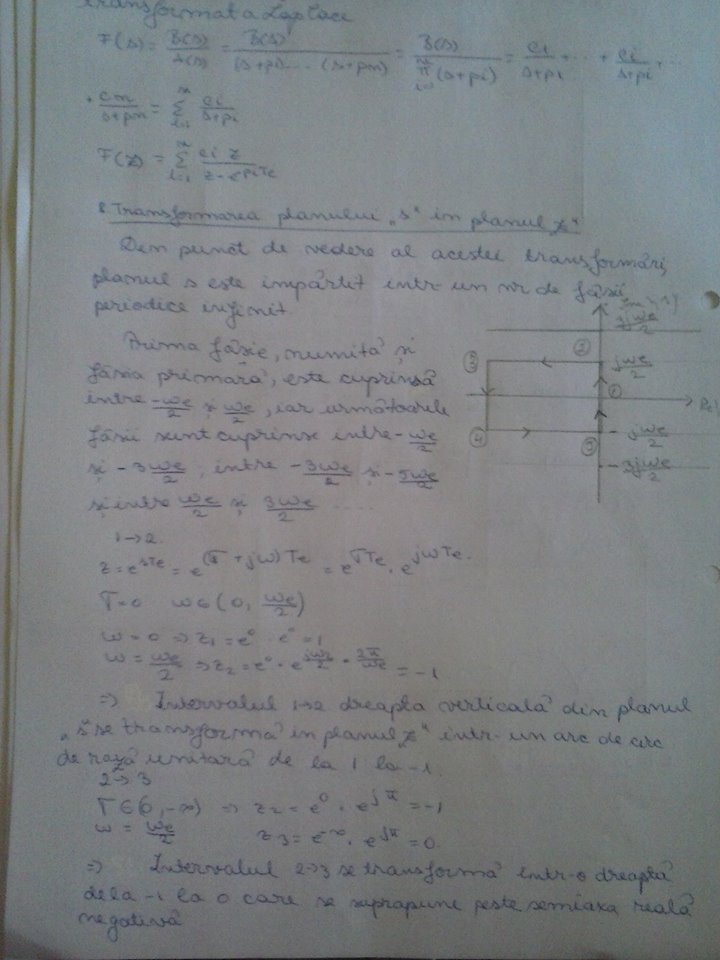 transformata Laplace
F(s) = B(s)/A(s) = B(s)/(s+p1)...(s+pn) = B(s)/π(s+pi) = c1/s+p1 + ... + ci/s+pi + ...
+ cn/s+pn = Σ ci/s+pi
F(z) = Σ ci z/z-e^piTe
8. Transformarea planului „s" în planul „z"
Din punct de vedere al acestei transformări,
planul s este împărțit într-un nr de fâșii
periodice infinit.
Prima fâșie, numită și
fâșia primară, este cuprinsă
între -ωe/2 și ωe/2, iar următoarele
fâșii sunt cuprinse între -ωe/2
și -3ωe/2, între -3ωe/2 și -5ωe/2
și între ωe/2 și 3ωe/2 ....
3jωe/2
② jωe/2
③
①
Re()
④ ⑤ - jωe/2
- 3jωe/2
1→2.
z = e^sTe = e^(σ+jω)Te = e^σTe · e^jωTe.
σ=0 ω∈(0, ωe/2)
ω=0 ⇒ z1 = e^0 · e^0 = 1
ω = ωe/2 ⇒ z2 = e^0 · e^jωe/2 · 2π/ωe = -1
⇒ Intervalul 1→2 dreapta verticală din planul
„s" se transformă în planul „z" într-un arc de cerc
de rază unitară de la 1 la -1.
2→3
σ∈(0,-∞) ⇒ z2 = e^0 · e^jπ = -1
ω = ωe/2 z3 = e^-∞ · e^jπ = 0
⇒ Intervalul 2→3 se transformă într-o dreaptă
de la -1 la 0 care se suprapune peste semiaxa reală
negativă